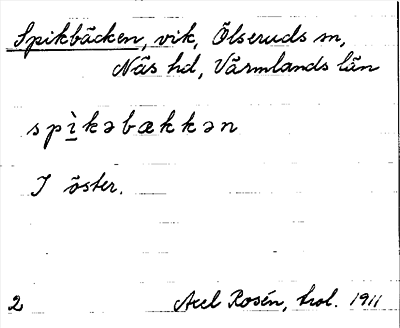 Spikbäcken, vik, Ölseruds sn,
Näs hd, Värmlands län
spì̱kəbækkən
I öster.
2 Axel Rosén, trol. 1911